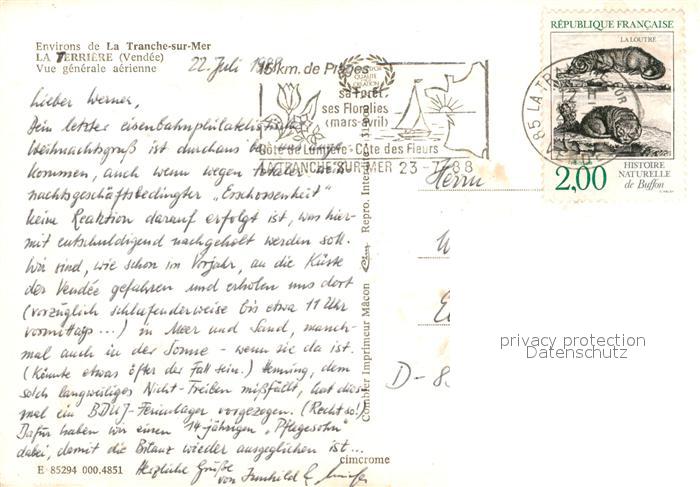 Environs de La Tranche-sur-Mer
LA TERRIÈRE (Vendée)
Vue générale aérienne
22. Juli 1988
Lieber Werner,
Dein letzter eisenbahnphilatelistischer
Weihnachtsgruß ist durchaus
kommen, auch wenn wegen totaler weih-
nachtsgeschäftsbedingter „Erschossenheit"
keine Reaktion darauf erfolgt ist, was hier-
mit entschuldigend nachgeholt werden soll.
Wir sind, wie schon im Vorjahr, an die Küste
der Vendée gefahren und erholen uns dort
(vorzüglich schlafenderweise bis etwa 11 Uhr
vormittags...) in Meer und Sand, manch-
mal auch in der Sonne - wenn sie da ist.
(Könnte etwas öfter der Fall sein.) Henning, dem
solch langweiliges Nicht-Treiben mißfällt, hat dies
mal ein BDMJ-Ferienlager vorgezogen. (Recht so!)
Dafür haben wir einen 14-jährigen „Pflegesohn"
dabei, damit die Bilanz wieder ausgeglichen ist...
Herzliche Grüße
von Irmhild
E 85294 000.4851
cimcrome
Combier Imprimeur Mâcon Cim Repro. Inter
15 km. de Plages
sa Forêt
ses Floralies
(mars-avril)
Côte de Lumière - Côte des Fleurs
LA TRANCHE SUR MER 23-7-88
85 LA TR
RÉPUBLIQUE FRANÇAISE
LA LOUTRE
2,00
HISTOIRE
NATURELLE
de Buffon
Herrn
D-8
privacy protection
Datenschutz